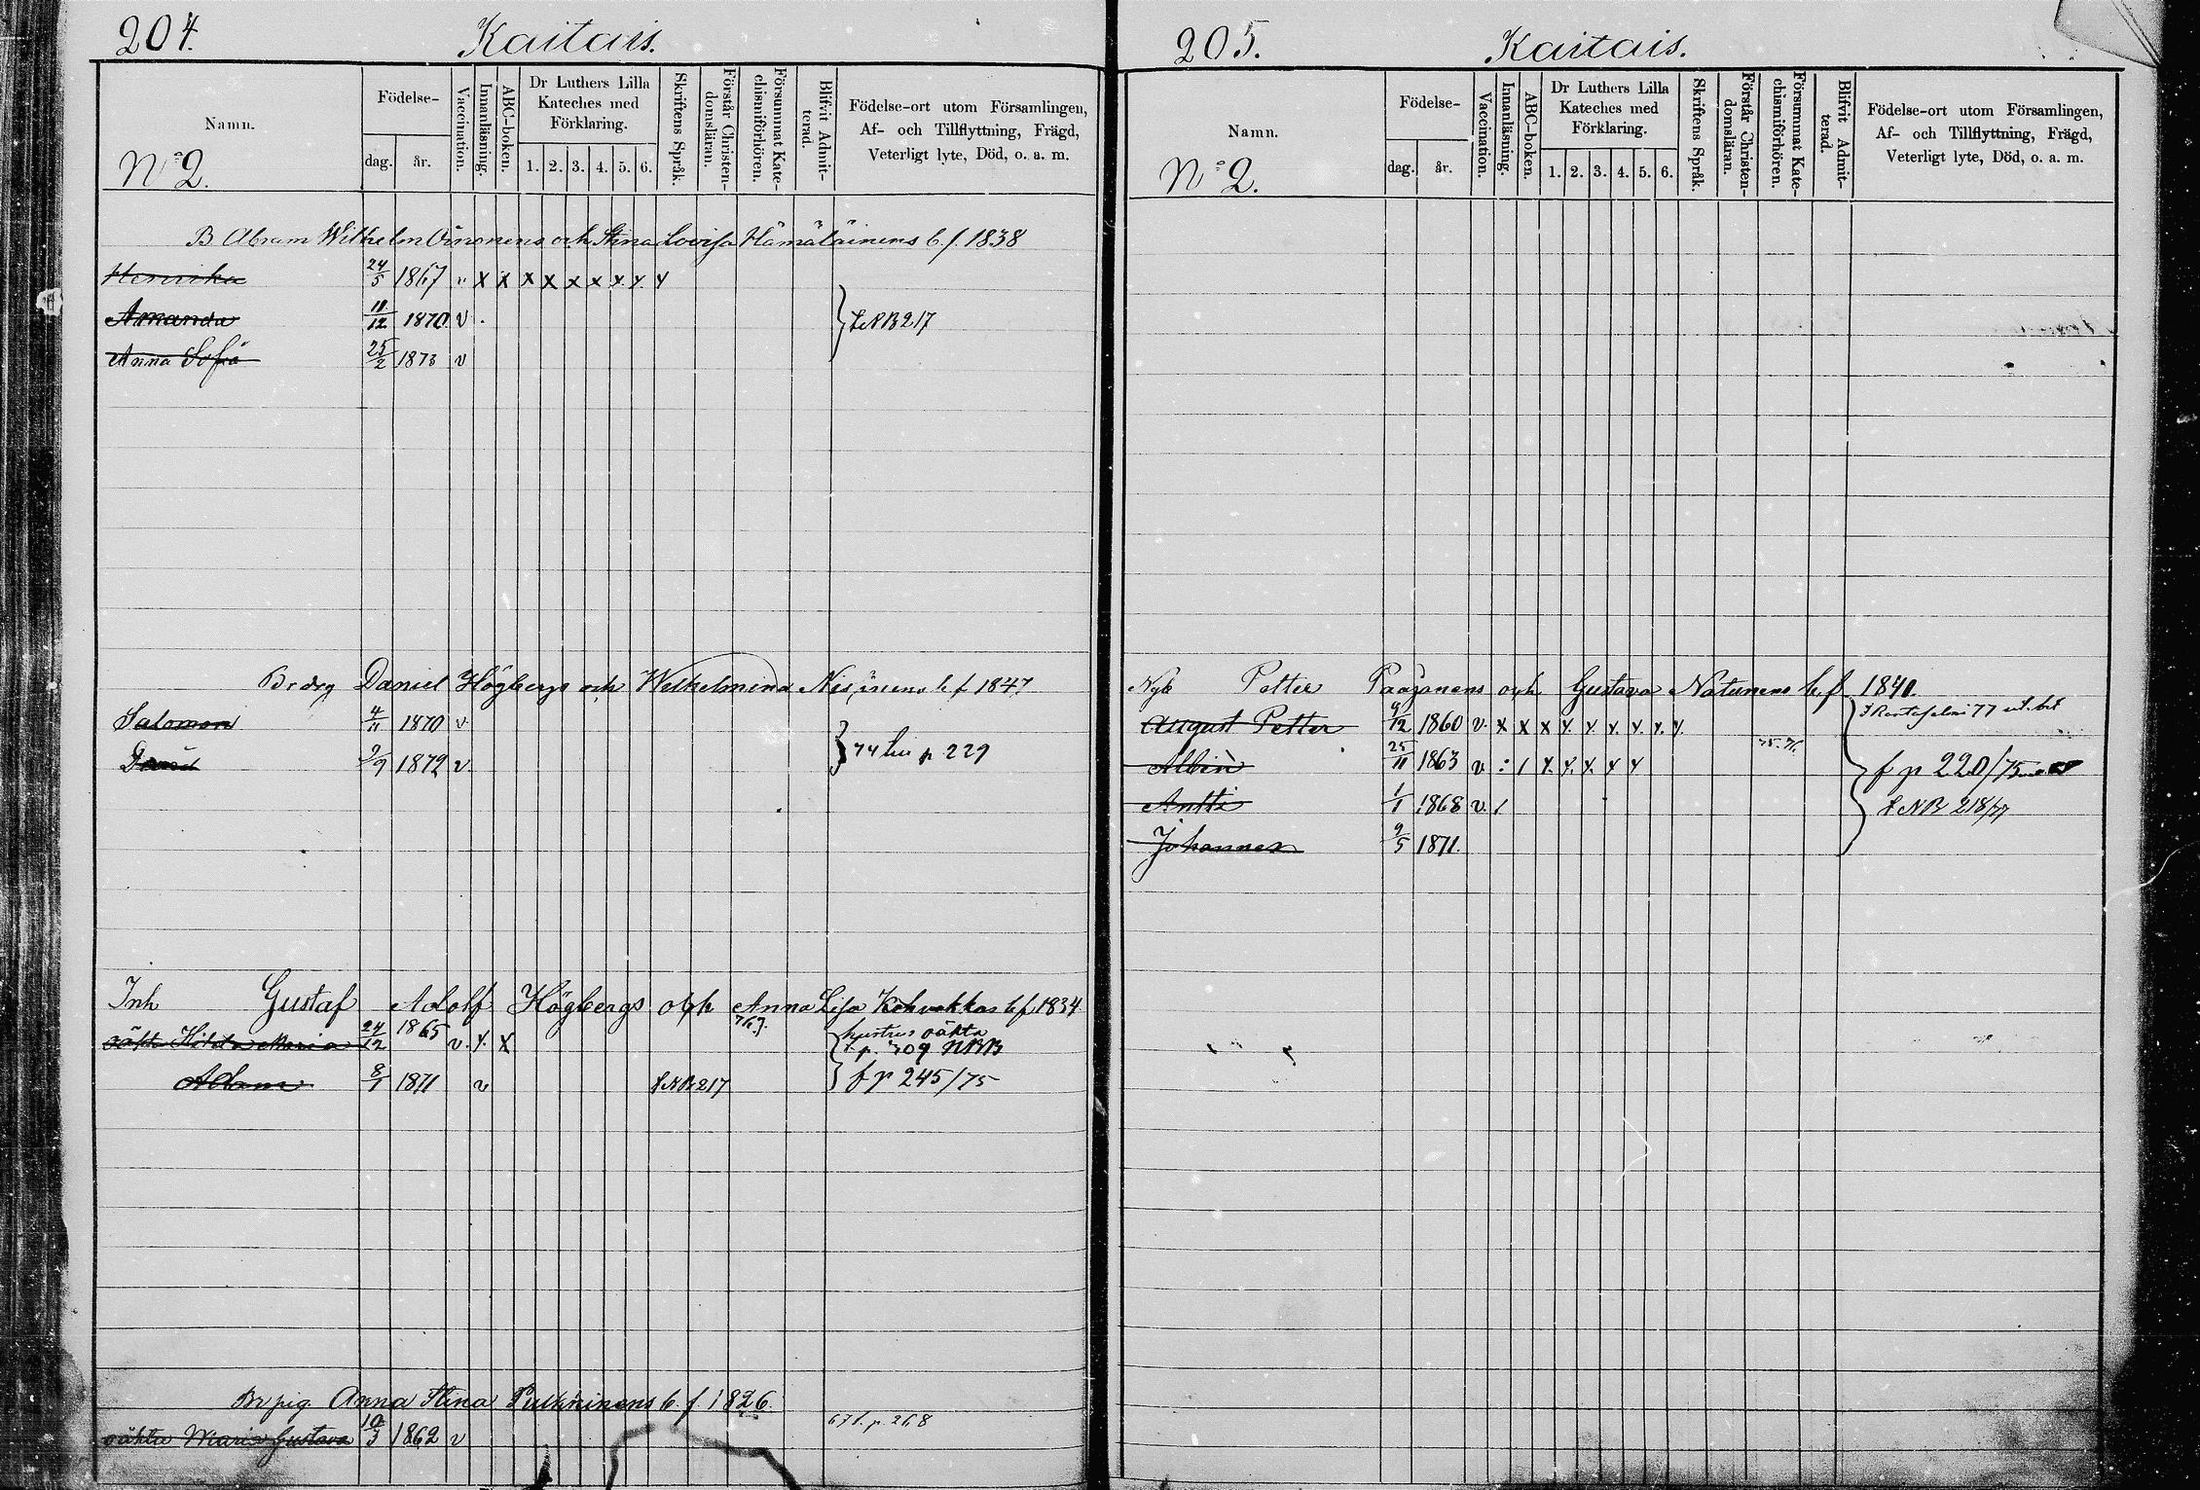 204.
Kaitais.
Namn.
Födelse-
dag. år.
Vaccination.
Innanläsning.
ABC-boken.
Dr Luthers Lilla
Kateches med
Förklaring.
1. 2. 3. 4. 5. 6.
Skriftens Språk.
Förstår Christen-
domsläran.
Försummat Kate-
chismiförhören.
Blifvit Admit-
terad.
Födelse-ort utom Församlingen,
Af- och Tillflyttning, Frägd,
Veterligt lyte, Död, o. a. m.
N:o 2.
B Abram Wilhelm och Stina Lovisa Hämäläinens b. f. 1838
Henrika 24/5 1867 x x x x x x x x
Amanda 11/12 1870 v
NB 217
Anna Sofia 25/2 1873 v
Daniel Högbergs och Wilhelmina b f 1847
Salomon 4/11 1870 v
David 2/9 1872 v.
p 229
Inh Gustaf Adolf Högbergs och Anna Lisa b f 1834
Hilda Maria 24/12 1865 v. x. x
hustrus oäkta
p. 309 NBB
Adam 8/1 1871 v NB 217 f p 245/75
Anna Stina b. f. 1826.
oäkta Maria Gustava 10/3 1862 v
p. 268
205.
Kaitais.
Namn.
Födelse-
dag. år.
Vaccination.
Innanläsning.
ABC-boken.
Dr Luthers Lilla
Kateches med
Förklaring.
1. 2. 3. 4. 5. 6.
Skriftens Språk.
Förstår Christen-
domsläran.
Försummat Kate-
chismiförhören.
Blifvit Admit-
terad.
Födelse-ort utom Församlingen,
Af- och Tillflyttning, Frägd,
Veterligt lyte, Död, o. a. m.
N:o 2.
Petter Paajanens och Gustava Natunens b. f 1840.
August Petter 9/12 1860 v. x x x x. x. x. x. x. x.
Albin 25/11 1863 v x. x. x. x x 75. 76. f p 220/75
Antti 1/1 1868 v. NB 218/77
Johannes 9/5 1871.